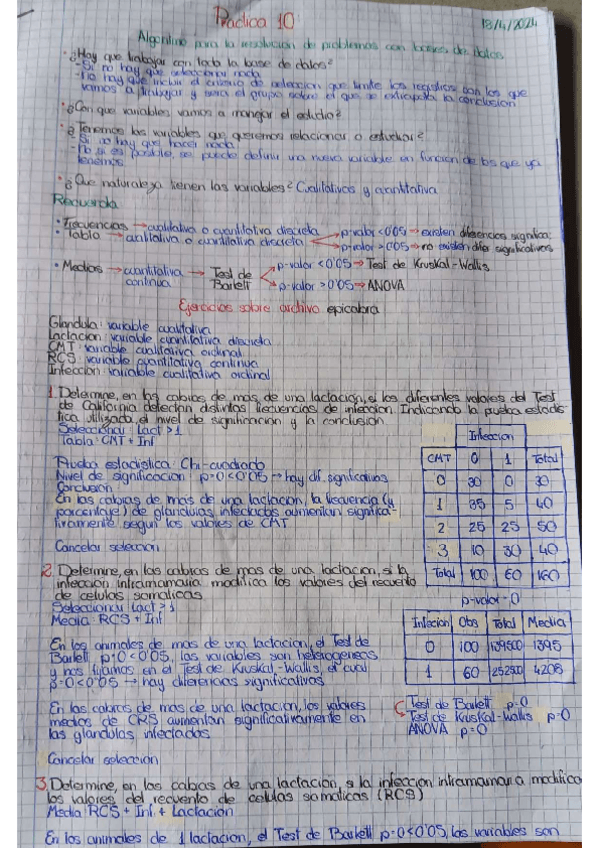 Práctica 10
18/4/2024
Algoritmo para la resolución de problemas con bases de datos
· ¿Hay que trabajar con toda la base de datos?
- Si no hay que seleccionar nada
- No hay que incluir el criterio de selección que limite los registros con los que
vamos a trabajar y será el grupo sobre el que se extrapola la conclusión
· ¿Con que variables vamos a manejar el estudio?
· ¿Tenemos las variables que queremos relacionar o estudiar?
- Si no hay que hacer nada
- No si es posible, se puede definir una nueva variable en función de las que ya
tenemos
· ¿Que naturaleza tienen las variables? Cualitativas y cuantitativa
Recuerda
· Frecuencias → cualitativa o cuantitativa discreta → p-valor < 0'05 → existen diferencias significa:
· Tabla → cualitativa o cuantitativa discreta → p-valor > 0'05 → no existen difer significativas
· Medias → cuantitativa continua → Test de Barlett
p-valor < 0'05 → Test de Kruskal-Wallis
p-valor > 0'05 → ANOVA
Ejercicios sobre archivo epicabra
Glandula: variable cualitativa
Lactacion: variable cuantitativa discreta
CMT: variable cualitativa ordinal
RCS: variable cuantitativa continua
Infeccion: variable cualitativa ordinal
1. Determine, en las cabras de mas de una lactación, si los diferentes valores del Test
de California detectan distintas frecuencias de infeccion. Indicando la prueba estadis-
tica utilizada, el nivel de significación y la conclusión
Seleccionar Lact > 1
Tabla: CMT + Inf
Prueba estadistica: Chi-cuadrado
Nivel de significacion p=0 < 0'05 → hay dif. significativas
Conclusion:
En las cabras de mas de una lactacion, la frecuencia (y
porcentaje) de glandulas infectadas aumentan significa-
tivamente segun los valores de CMT
Cancelar seleccion
Infeccion
CMT 0 1 Total
0 30 0 30
1 35 5 40
2 25 25 50
3 10 30 40
Total 100 60 160
p-valor = 0
2. Determine, en las cabras de mas de una lactacion, si la
infección intramamaria modifica los valores del recuento
de celulas somaticas
Seleccionar Lact > 1
Media RCS + Inf
En los animales de mas de una lactacion, el Test de
Barlett p=0 < 0'05, las variables son heterogeneas
y nos fijamos en el Test de Kruskal-Wallis, el cual
=0 < 0'05 → hay diferencias significativas
En las cabras de mas de una lactación, los valores
medios de CRS aumentan significativamente en
las glandulas infectadas
Cancelar seleccion
Infeccion Obs Total Media
0 100 139500 1395
1 60 252500 4208
Test de Barlett p=0
Test de Kruskal-Wallis p=0
ANOVA p=0
3. Determine, en las cabras de una lactacion, si la infeccion intramamaria modifica
los valores del recuento de celulas somaticas (RCS)
Media RCS + Inf + Lactación
En los animales de 1 lactacion, el Test de Barlett p=0 < 0'05, las variables son